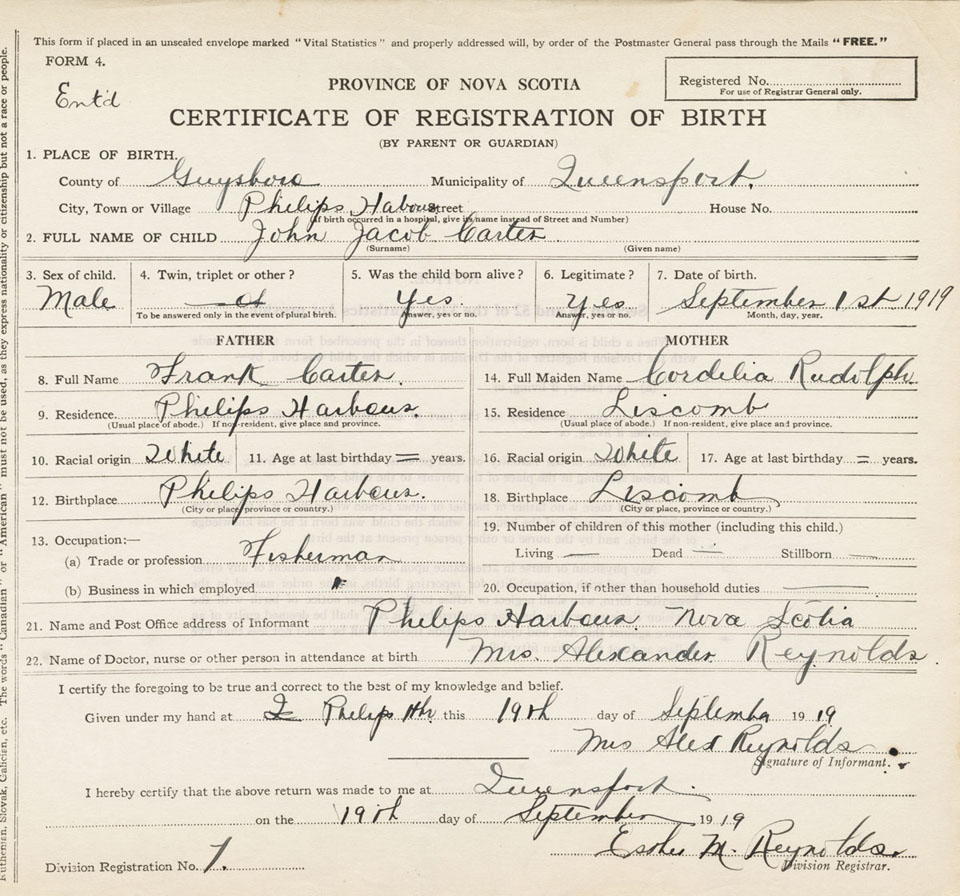 This form if placed in an unsealed envelope marked "Vital Statistics" and properly addressed will, by order of the Postmaster General pass through the Mails "FREE."
FORM 4.
Ent'd
Registered No.
For use of Registrar General only.
PROVINCE OF NOVA SCOTIA
CERTIFICATE OF REGISTRATION OF BIRTH
(BY PARENT OR GUARDIAN)
1. PLACE OF BIRTH.
County of Guysboro Municipality of Queensport.
City, Town or Village Philips Habour Street House No.
(If birth occurred in a hospital, give its name instead of Street and Number)
2. FULL NAME OF CHILD John Jacob Carter
(Surname) (Given name)
3. Sex of child. 4. Twin, triplet or other? 5. Was the child born alive? 6. Legitimate? 7. Date of birth.
Male Yes. Yes September 1st 1919
To be answered only in the event of plural birth. Answer, yes or no. Answer, yes or no. Month, day, year.
FATHER MOTHER
8. Full Name Frank Carter. 14. Full Maiden Name Cordelia Rudolph
9. Residence. Philips Harbour. 15. Residence Liscomb
(Usual place of abode.) If non-resident, give place and province. (Usual place of abode.) If non-resident, give place and province.
10. Racial origin White 11. Age at last birthday = years. 16. Racial origin White 17. Age at last birthday = years.
12. Birthplace Philips Harbour. 18. Birthplace Liscomb
(City or place, province or country.) (City or place, province or country.)
19. Number of children of this mother (including this child.)
13. Occupation:—
Living — Dead — Stillborn —
(a) Trade or profession Fisherman
(b) Business in which employed 20. Occupation, if other than household duties
21. Name and Post Office address of Informant Philips Harbour. Nova Scotia
22. Name of Doctor, nurse or other person in attendance at birth Mrs. Alexander Reynolds.
I certify the foregoing to be true and correct to the best of my knowledge and belief.
Given under my hand at Philips Hbr this 19th day of September 1919
Mrs Alex Reynolds
Signature of Informant.
I hereby certify that the above return was made to me at Queensport.
on the 19th day of September 1919
Esther M. Reynolds.
Division Registration No. 7. Division Registrar.
Ruthenian, Slovak, Galician, etc. The words "Canadian" or "American" must not be used, as they express nationality or citizenship but not a race or people.